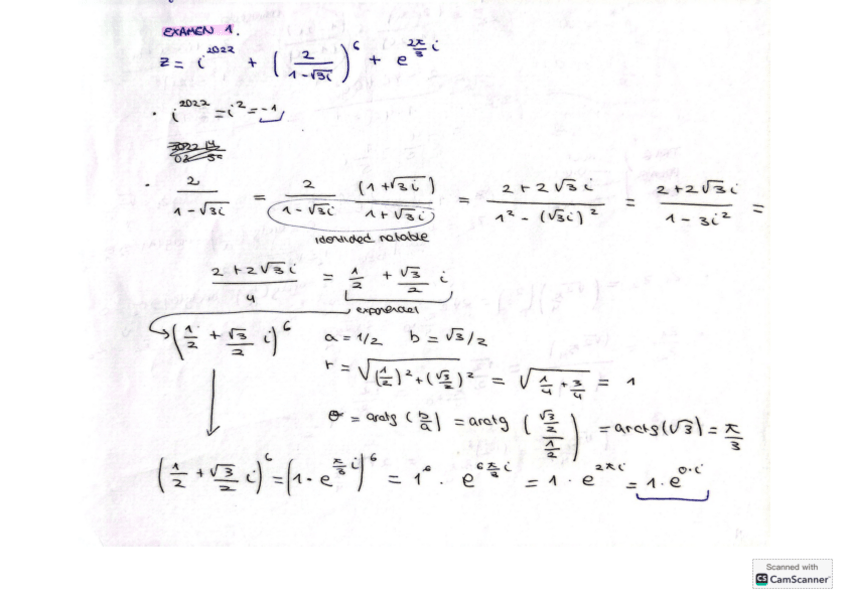 EXAMEN 1.
z = i^2022 + (2/(1-√3i))^6 + e^(2π/3 i)
· i^2022 = i^2 = -1
· 2/(1-√3i) = 2/(1-√3i) (1+√3i)/(1+√3i) = (2+2√3i)/(1^2-(√3i)^2) = (2+2√3i)/(1-3i^2) =
identidad notable
(2+2√3i)/4 = 1/2 + √3/2 i
exponencial
(1/2 + √3/2 i)^6 a = 1/2 b = √3/2
r = √((1/2)^2+(√3/2)^2) = √(1/4+3/4) = 1
θ = arctg (b/a) = arctg ((√3/2)/(1/2)) = arctg(√3) = π/3
(1/2 + √3/2 i)^6 = (1·e^(π/3 i))^6 = 1^6 · e^(6π/3 i) = 1 · e^(2πi) = 1·e^(0·i)
Scanned with
CS CamScanner